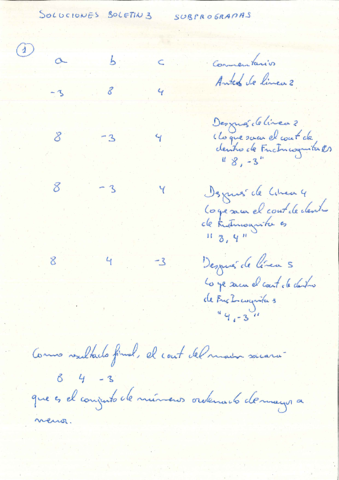 SOLUCIONES BOLETIN 3 SUBPROGRAMAS
1
a b c Comentario
-3 8 4 Antes de línea 2
8 -3 4 Después de línea 2
(Lo que saca el cout de
dentro de FucIncognita es
"8, -3"
8 -3 4 Después de línea 4
Lo que saca el cout de dentro
de FucIncognita es
"8, 4"
8 4 -3 Después de línea 5
Lo que saca el cout de dentro
de FucIncognita es
"4, -3"
Como resultado final, el cout del main sacará
8 4 -3
que es el conjunto de números ordenado de mayor a
menor.